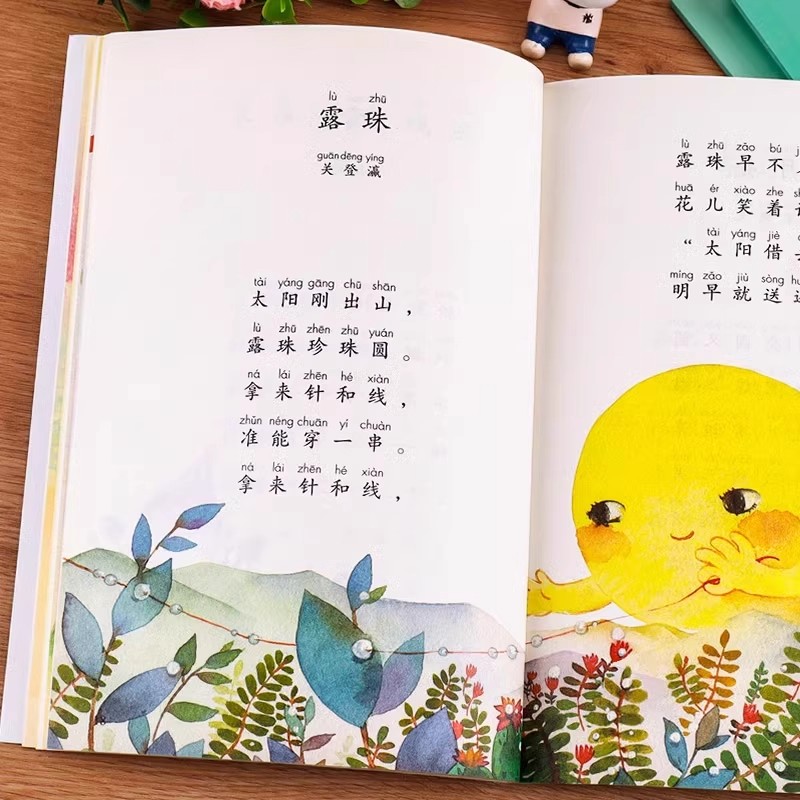 lù zhū
露珠
guān dēng yíng
关登瀛
tài yáng gāng chū shān
太阳刚出山，
lù zhū zhēn zhū yuán
露珠珍珠圆。
ná lái zhēn hé xiàn
拿来针和线，
zhǔn néng chuān yī chuàn
准能穿一串。
ná lái zhēn hé xiàn
拿来针和线，
lù zhū zǎo bú
露珠早不
huā ér xiào zhe
花儿笑着
tài yáng jiè
“太阳借
míng zǎo jiù sòng
明早就送